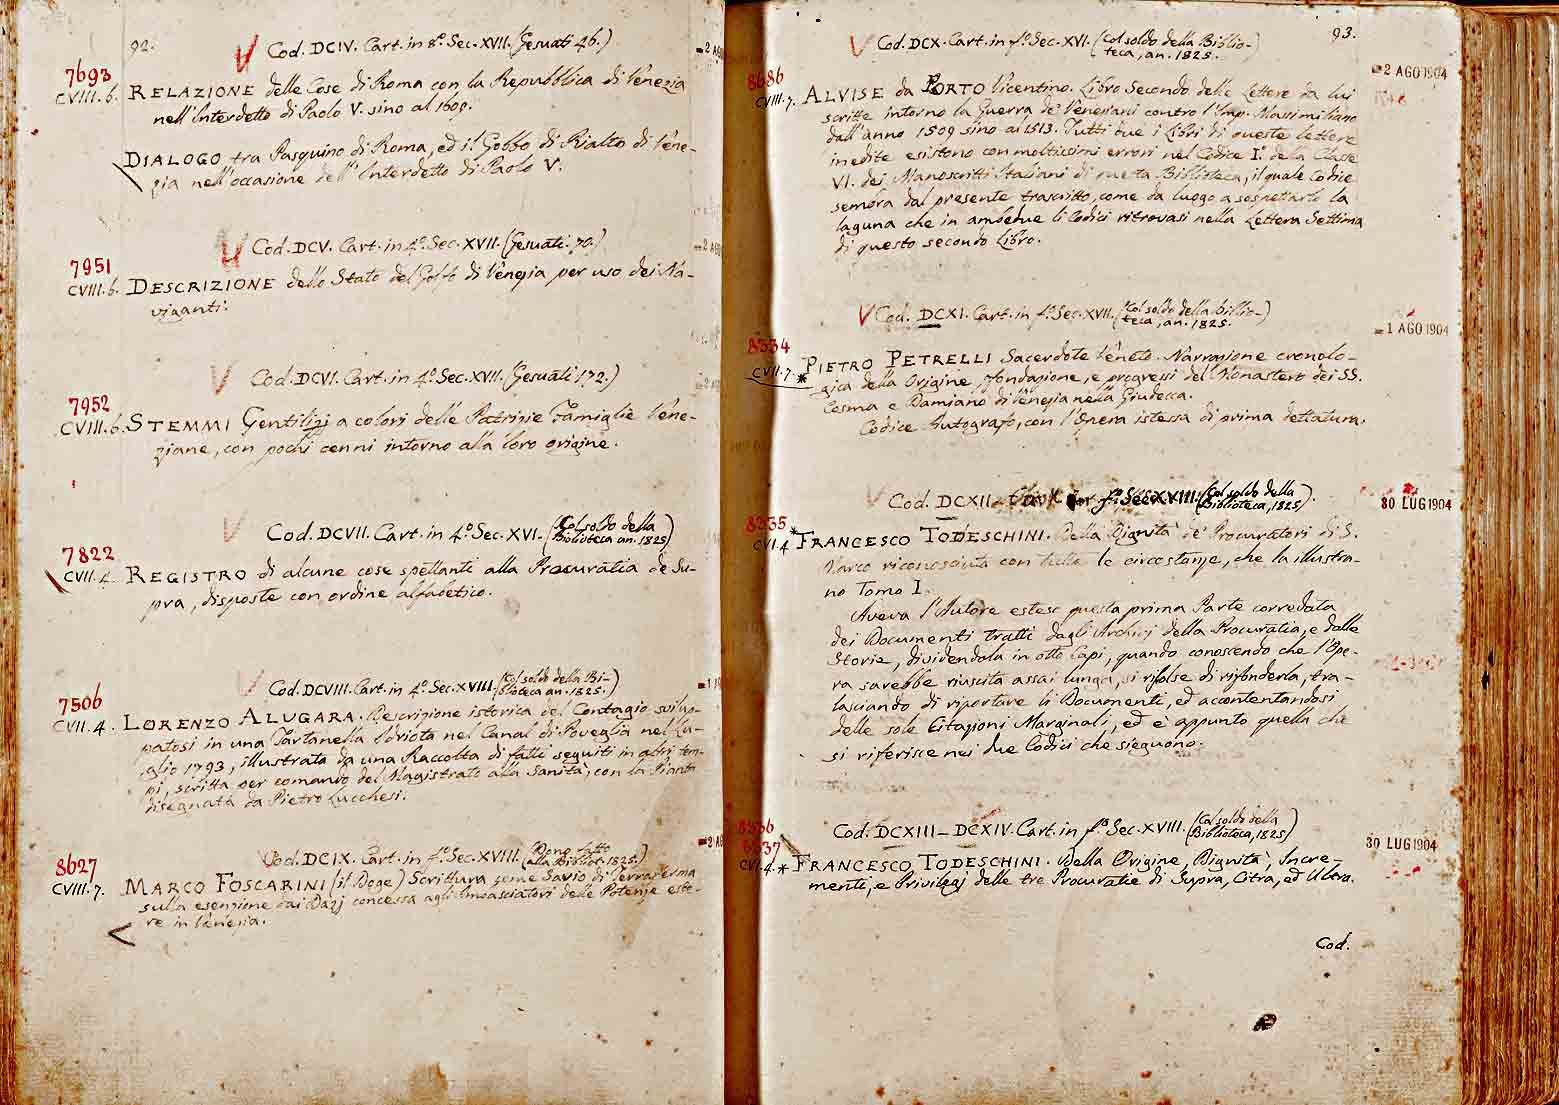 92.
Cod. DCIV. Cart. in 8.º Sec. XVII. (Gesuati 46.)
= 2 AGO
7693
CVIII. 6. RELAZIONE delle Cose di Roma con la Repubblica di Venezia
nell'Interdetto di Paolo V. sino al 1609.
DIALOGO tra Pasquino di Roma, ed il Gobbo di Rialto di Vene-
zia nell'occasione dell'Interdetto di Paolo V.
Cod. DCV. Cart. in 4.º Sec. XVII. (Gesuati. 70.)
= 2 AGO
7951
CVIII. 6. DESCRIZIONE dello Stato del Golfo di Venezia per uso dei Na-
viganti.
Cod. DCVI. Cart. in 4.º Sec. XVII. (Gesuati 172.)
7952
CVIII. 6. STEMMI Gentilizj a colori delle Patrizie Famiglie Vene-
ziane, con pochi cenni intorno alla loro origine.
Cod. DCVII. Cart. in 4.º Sec. XVI. (Col soldo della
Biblioteca an. 1825)
7822
CVII. 4. REGISTRO di alcune cose spettanti alla Procuratia de Su-
pra, disposte con ordine alfabetico.
Cod. DCVIII. Cart. in 4.º Sec. XVIII. (Col soldo della Bi-
blioteca an. 1825.)
7506
CVII. 4. LORENZO ALUGARA. Descrizione istorica del Contagio svilup-
patosi in una Tartanella Idriota nel Canal di Poveglia nel Lu-
glio 1793, illustrata da una Raccolta di fatti seguiti in altri tem-
pi, scritta per comando del Magistrato alla Sanità, con la Pianta
disegnata da Pietro Lucchesi.
Cod. DCIX. Cart. in 4.º Sec. XVIII. (Dono fatto
alla Bibliot. 1825.)
= 2 AG
8027
CVIII. 7. MARCO FOSCARINI (il Doge) Scrittura come Savio di Terraferma
sulla esenzione dai Dazj concessa agli Ambasciatori delle Potenze este-
re in Venezia.
93.
Cod. DCX. Cart. in f.º Sec. XVI. (Col soldo della Biblio-
teca, an. 1825.)
= 2 AGO 1904
8686
CVIII. 7. ALVISE da PORTO Vicentino. Libro Secondo delle Lettere da lui
scritte intorno la Guerra de' Veneziani contro l'Imp. Massimiliano
dall'anno 1509 sino al 1513. Tutti due i Libri di queste lettere
inedite esistono con moltissimi errori nel Codice I.º della Classe
VI. dei Manoscritti Italiani di questa Biblioteca, il quale Codice
sembra dal presente trascritto, come da luogo a sospettarlo la
laguna che in ambedue li Codici ritrovasi nella Lettera Settima
di questo secondo Libro.
Cod. DCXI. Cart. in f.º Sec. XVII. (Col soldo della Biblio-
teca, an. 1825.)
= 1 AGO 1904
8334
CVII. 7. * PIETRO PETRELLI Sacerdote Veneto. Narrazione cronolo-
gica della Origine, fondazione, e progressi del Monastero dei SS.
Cosma e Damiano di Venezia nella Giudecca.
Codice Autografo, con l'Opera istessa di prima dettatura.
Cod. DCXII. Cart. in f.º Sec. XVIII. (Col soldo della
Biblioteca, 1825).
30 LUG 1904
8335
CVI. 4 * FRANCESCO TODESCHINI. Della Dignità de' Procuratori di S.
Marco riconosciuta con tutte le circostanze, che la illustra-
no Tomo I.
Aveva l'Autore estesa questa prima Parte corredata
dei Documenti tratti dagli Archivj della Procuratia, e dalle
Storie, dividendola in otto Capi, quando conoscendo che l'Ope-
ra sarebbe riuscita assai lunga, si risolse di rifonderla, tra-
lasciando di riportare li Documenti, ed accontentandosi
delle sole Citazioni Marginali, ed è appunto quella che
si riferisce nei due Codici che sieguono.
Cod. DCXIII — DCXIV. Cart. in f.º Sec. XVIII. (Col soldo della
Biblioteca, 1825)
30 LUG 1904
8336
8337
CVI. 4. * FRANCESCO TODESCHINI. Della Origine, Dignità, Incre-
menti, e Privilegj delle tre Procuratie di Supra, Citra, ed Ultra.
Cod.